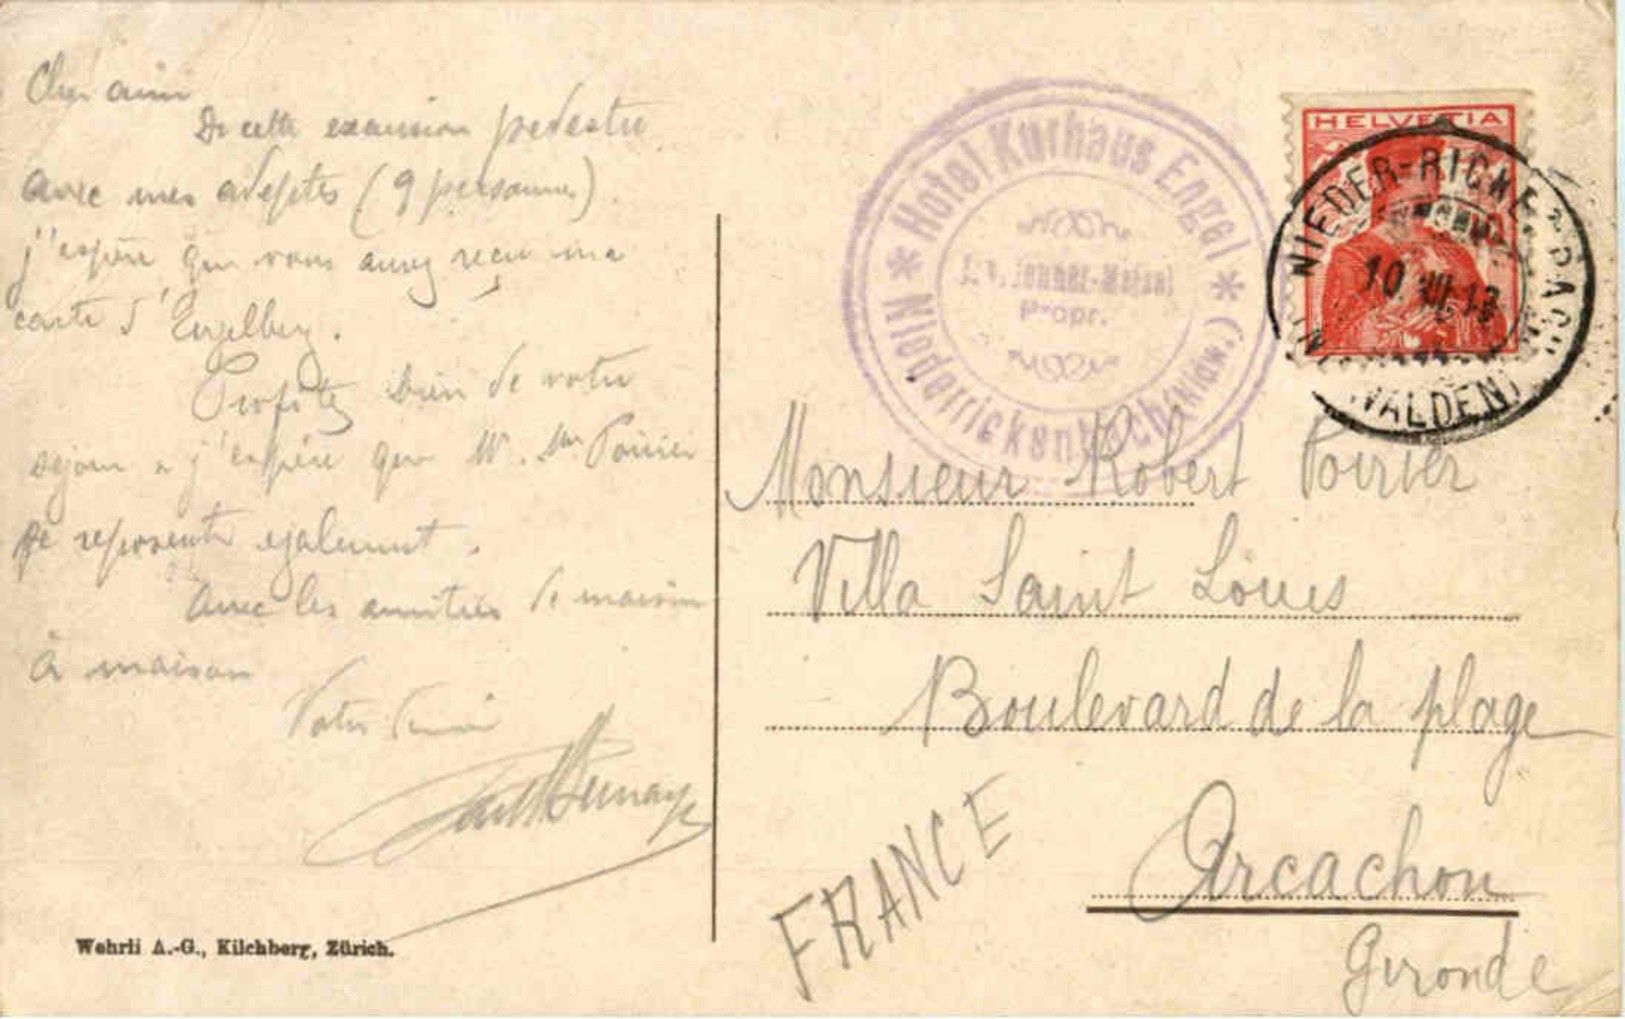 Cher ami
De cette excursion pedestre
avec mes adeptes (9 personnes)
j'espère que vous avez reçu ma
carte d'Engelberg.
Profitez bien de votre
sejour et j'espère que M. Mme Poirier
se reposent egalement.
Avec les amitiés de maison
à maison
Votre
Wehrli A.-G., Kilchberg, Zürich.
* Hotel Kurhaus Engel *
Propr.
Niederrickenbach (Nidw.)
HELVETIA
NIEDER-RICKENBACH
10. VII. 13
(NIDWALDEN)
Monsieur Robert Poirier
Villa Saint Louis
Boulevard de la plage
Arcachon
Gironde
FRANCE